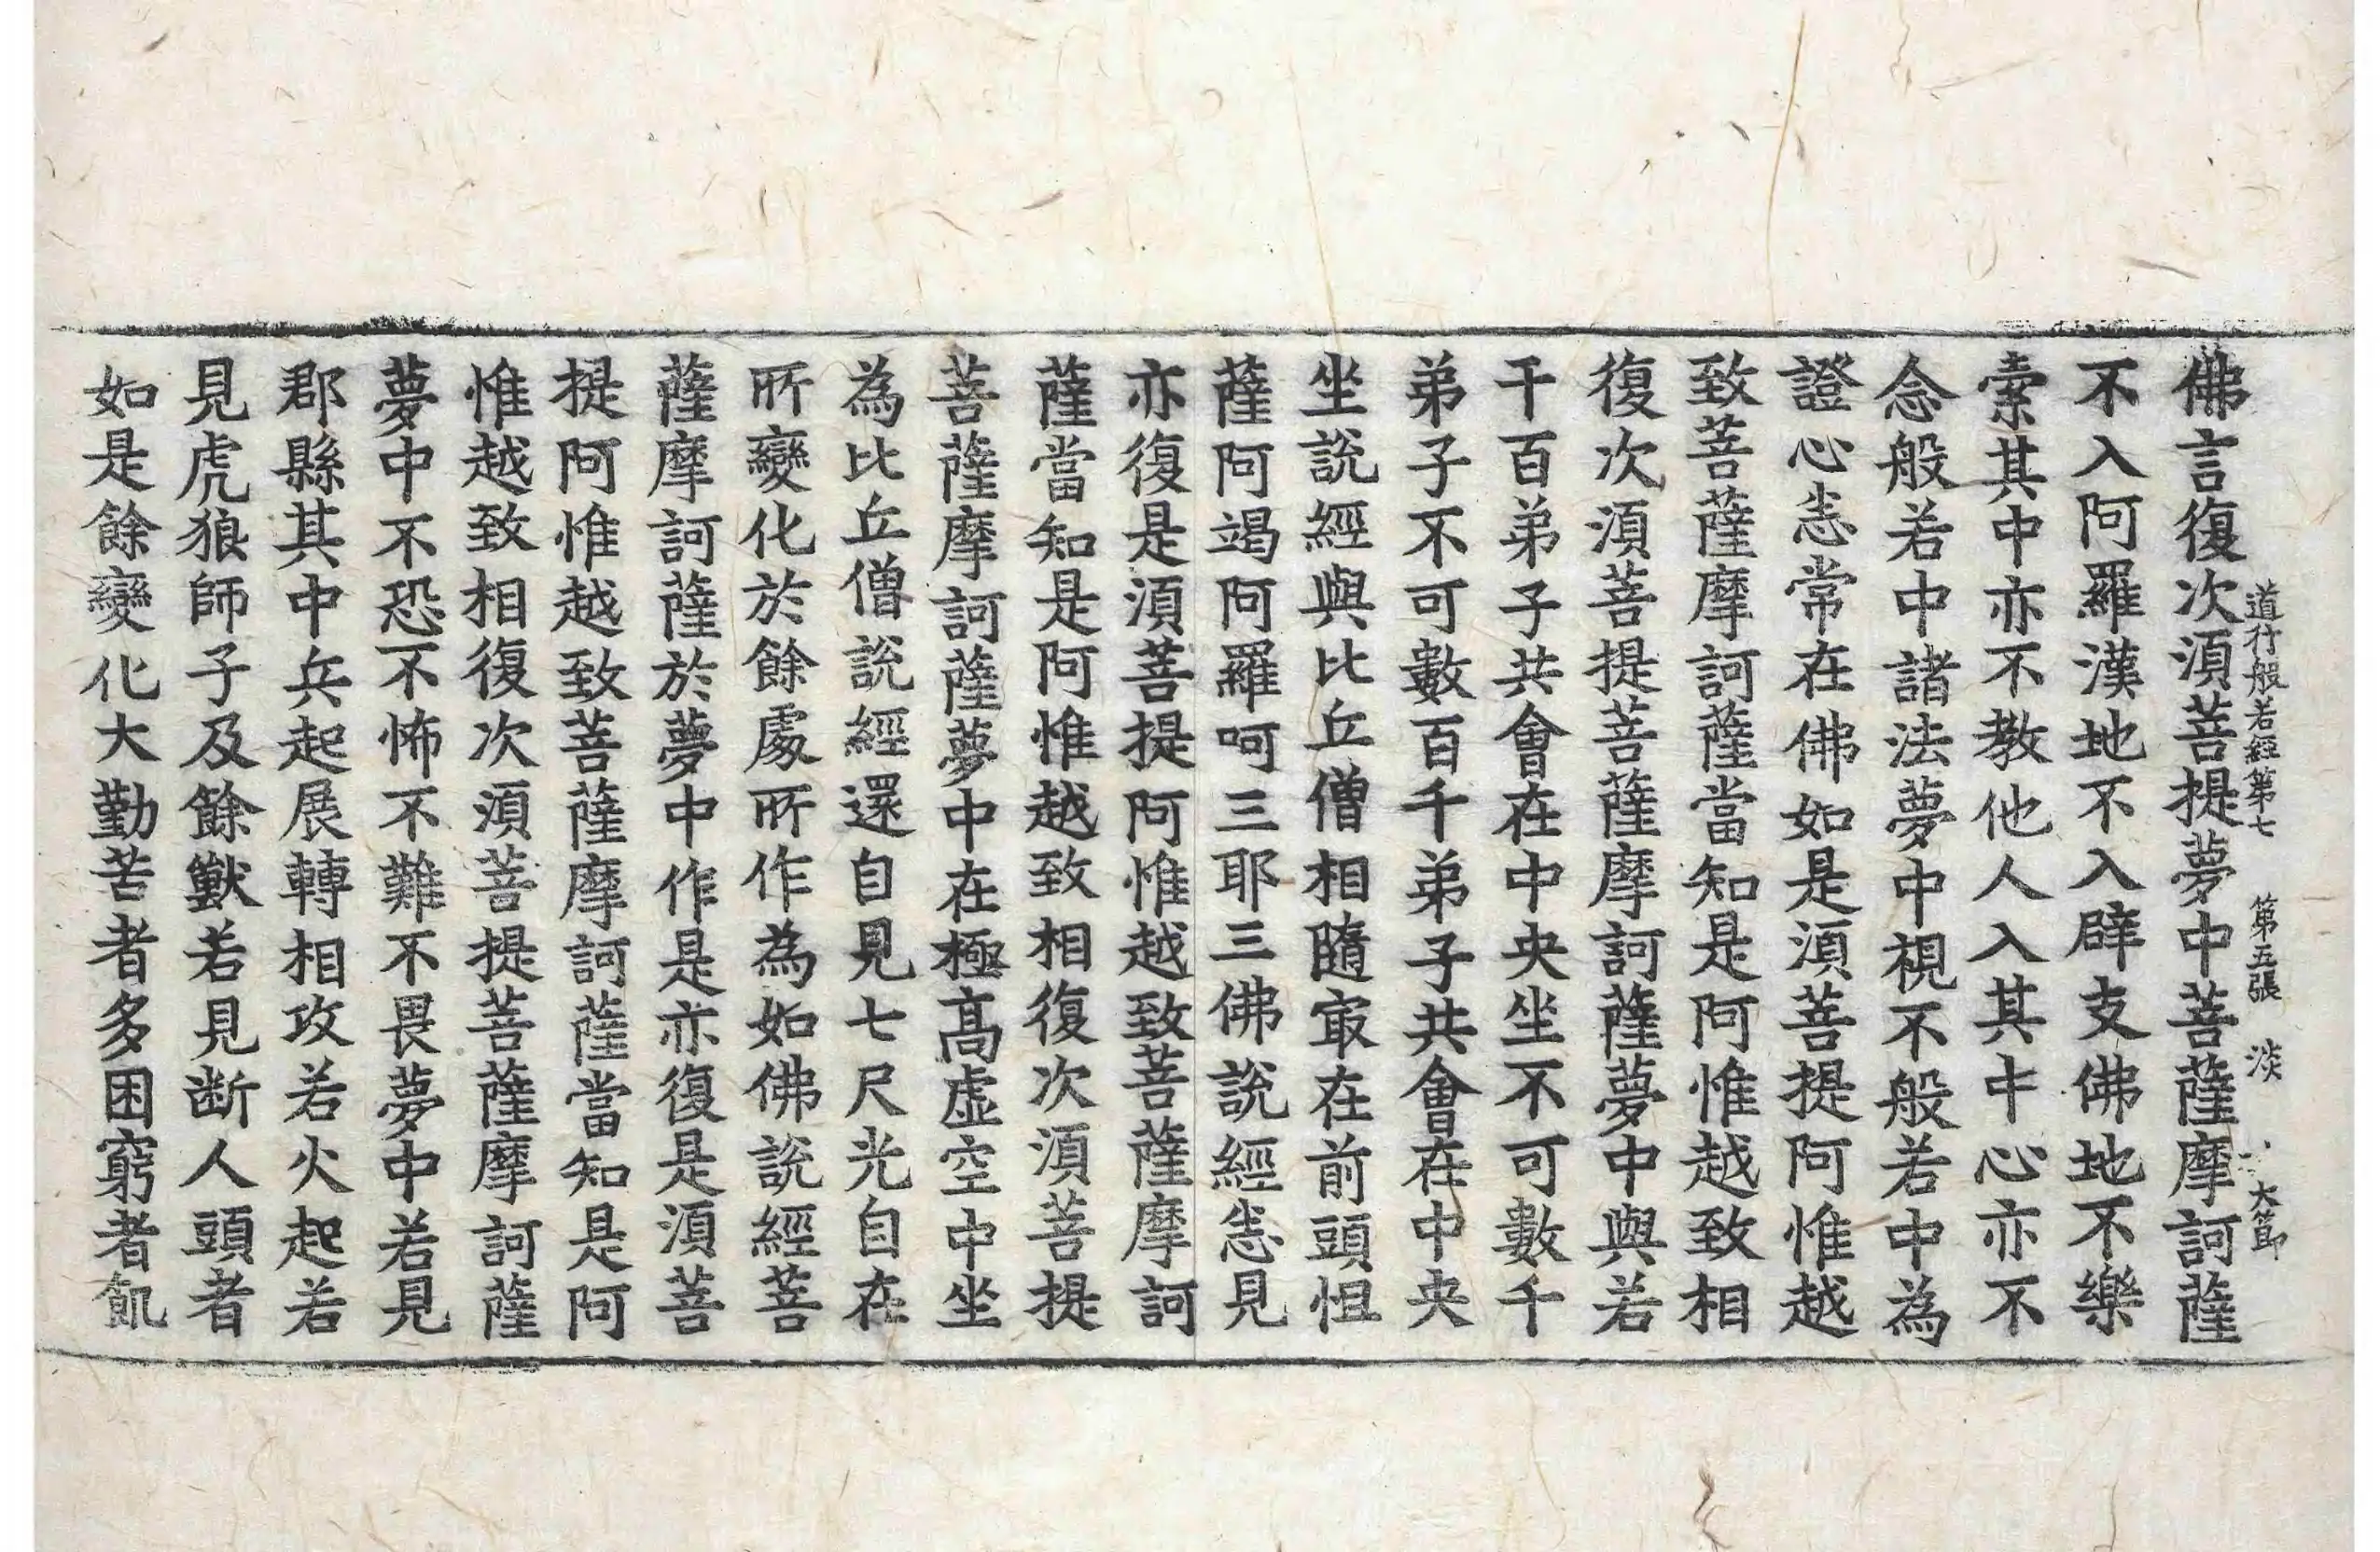 道行般若經第七 第五張 淡 大節
佛言復次湏菩提夢中菩薩摩訶薩
不入阿羅漢地不入辟支佛地不樂
索其中亦不教他人入其中心亦不
念般若中諸法夢中視不般若中為
證心恚常在佛如是湏菩提阿惟越
致菩薩摩訶薩當知是阿惟越致相
復次湏菩提菩薩摩訶薩夢中與若
干百弟子共會在中央坐不可數千
弟子不可數百千弟子共會在中央
坐說經與比丘僧相隨㝡在前頭怛
薩阿竭阿羅呵三耶三佛說經恚見
亦復是湏菩提阿惟越致菩薩摩訶
薩當知是阿惟越致相復次湏菩提
菩薩摩訶薩夢中在極髙虛空中坐
為比丘僧說經還自見七尺光自在
所變化於餘處所作為如佛說經菩
薩摩訶薩於夢中作是亦復是湏菩
提阿惟越致菩薩摩訶薩當知是阿
惟越致相復次湏菩提菩薩摩訶薩
夢中不恐不怖不難不畏夢中若見
郡縣其中兵起展轉相攻若火起若
見虎狼師子及餘獸若見断人頭者
如是餘變化大勤苦者多困窮者飢